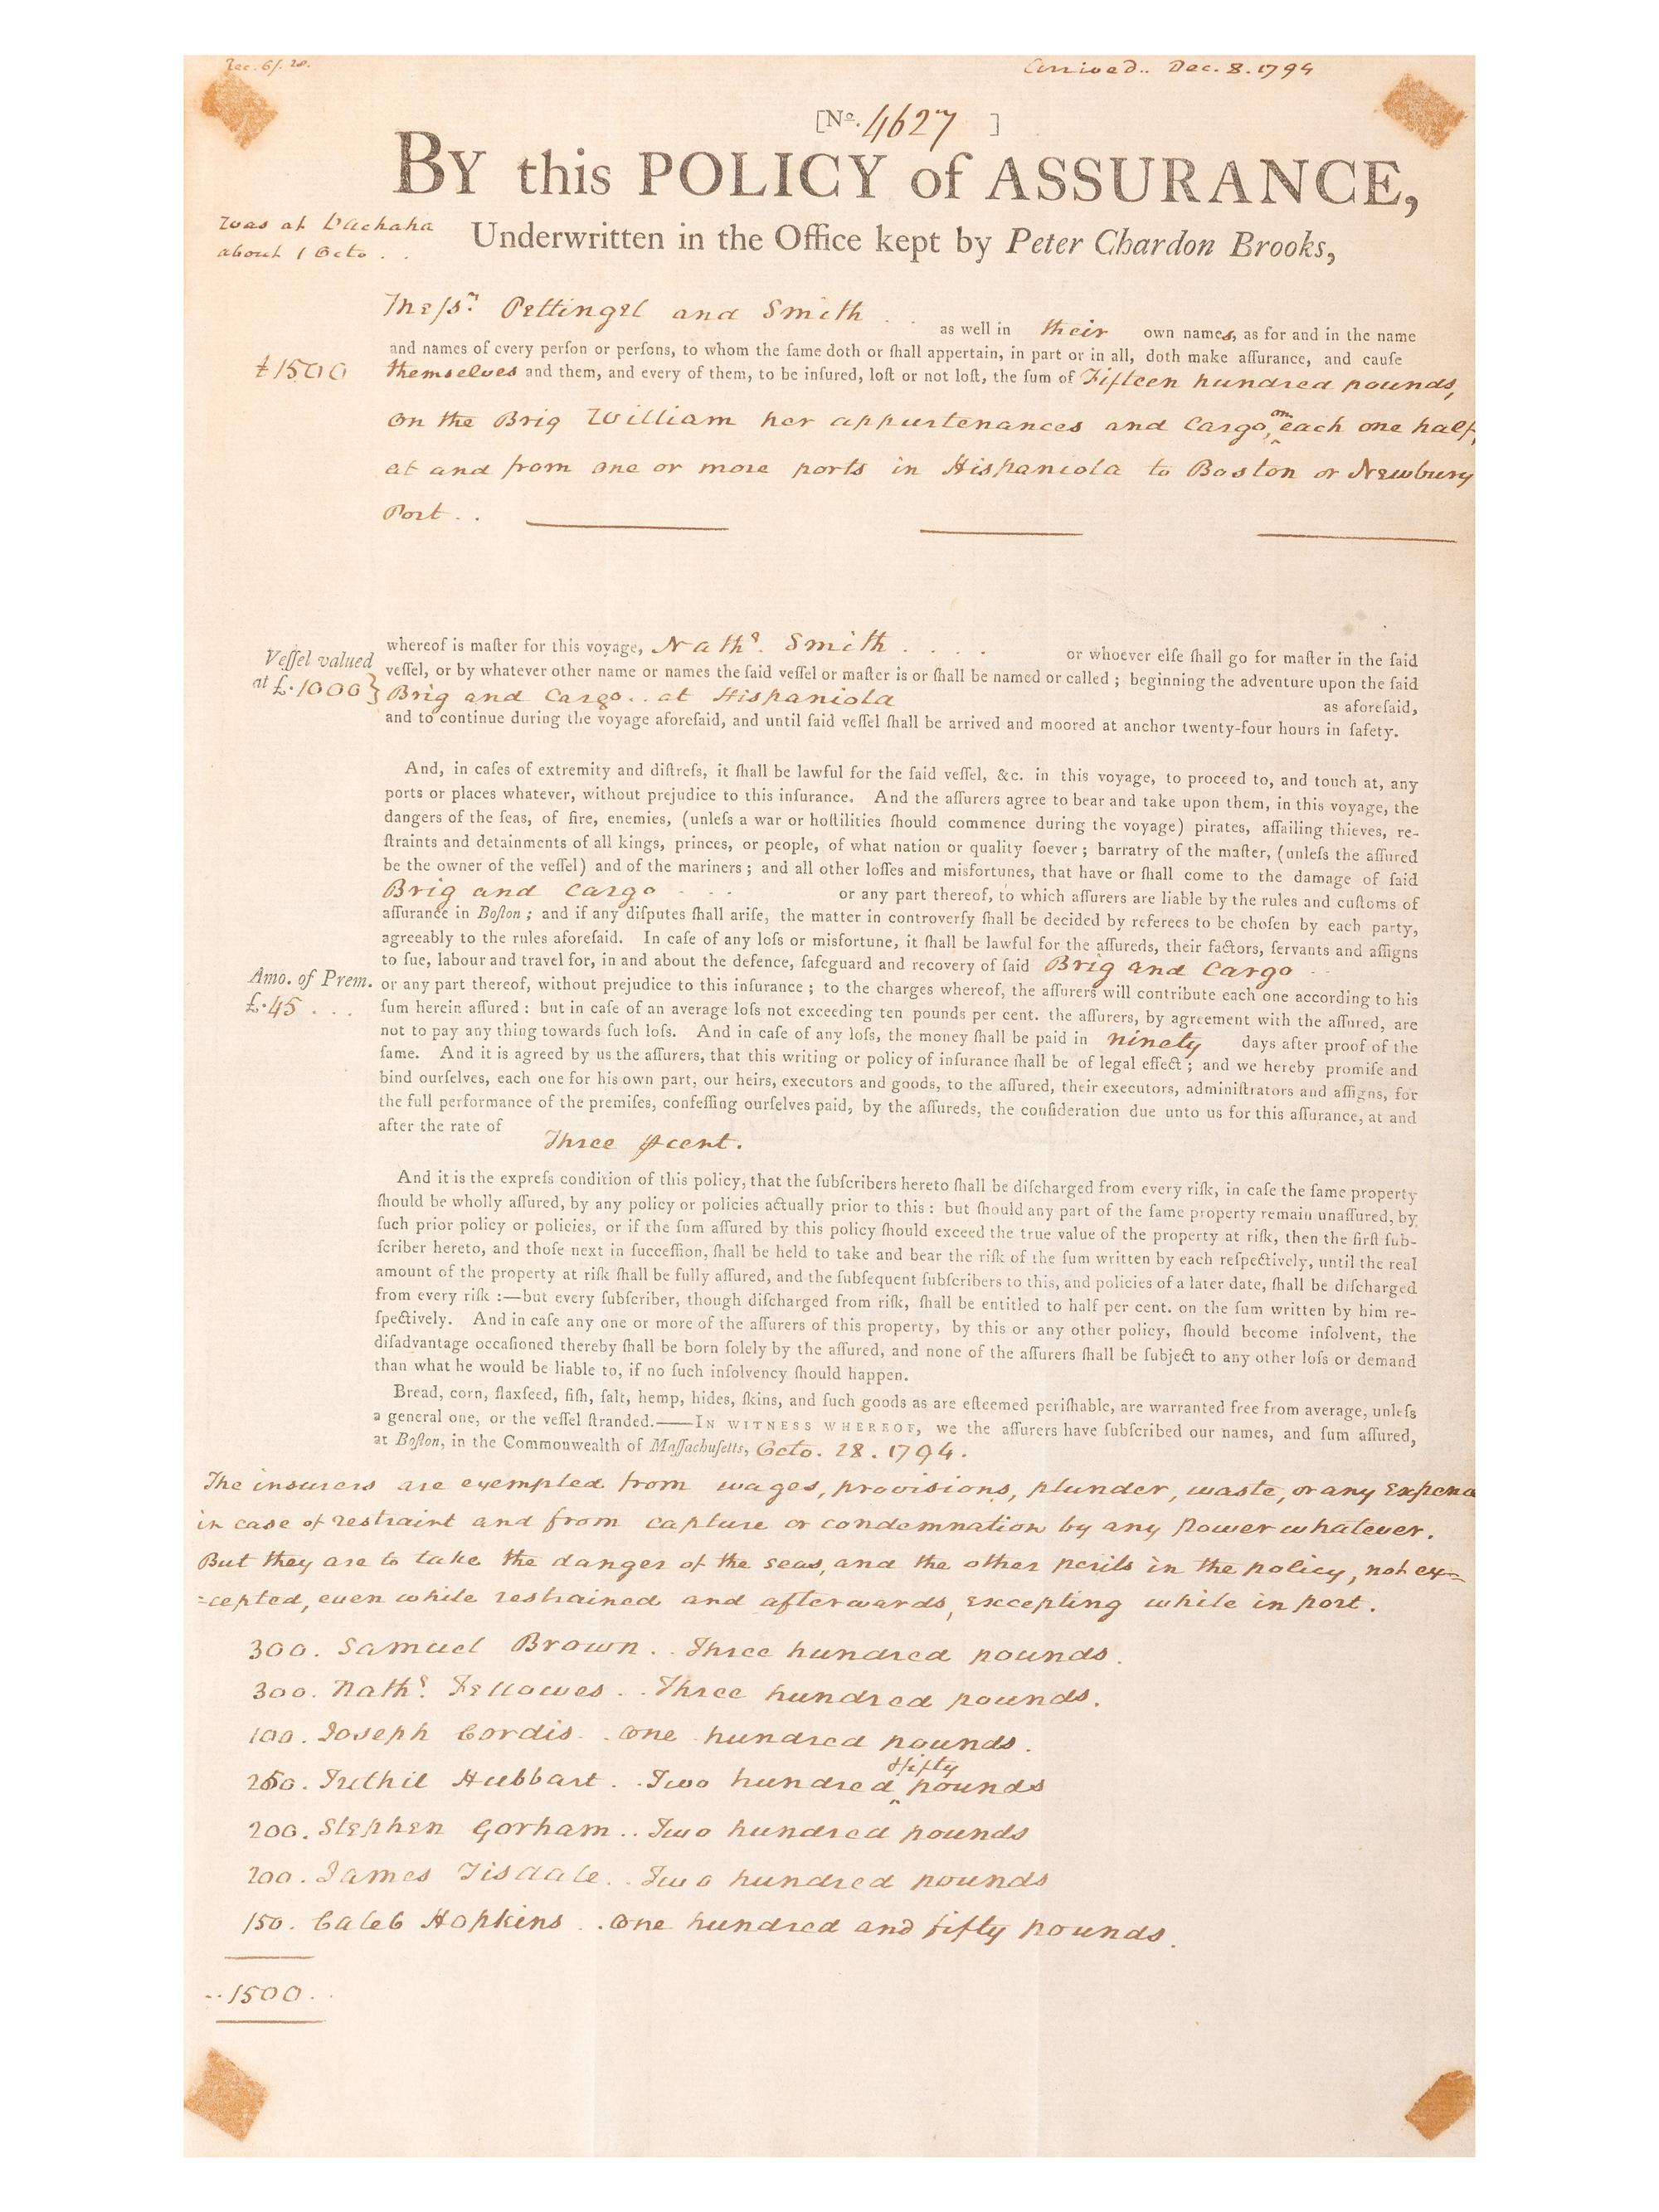 Arrived.. Dec. 8. 1794
[No. 4627 ]
BY this POLICY of ASSURANCE,
Was at
about 1 Octo . .
Underwritten in the Office kept by Peter Chardon Brooks,
Meſsrs. Pettingel and Smith . . as well in their own names, as for and in the name
and names of every perſon or perſons, to whom the ſame doth or ſhall appertain, in part or in all, doth make aſſurance, and cauſe
£1500
themselves and them, and every of them, to be inſured, loſt or not loſt, the ſum of Fifteen hundred pounds,
on the Brig William her appurtenances and Cargo, on each one half,
at and from one or more ports in Hispaniola to Boston or Newbury
Port . .
whereof is maſter for this voyage, Nathl. Smith . . . . or whoever elſe ſhall go for maſter in the ſaid
Veſſel valued
at £.1000}
veſſel, or by whatever other name or names the ſaid veſſel or maſter is or ſhall be named or called ; beginning the adventure upon the ſaid
Brig and Cargo . . at Hispaniola as aforeſaid,
and to continue during the voyage aforeſaid, and until ſaid veſſel ſhall be arrived and moored at anchor twenty-four hours in ſafety.
And, in caſes of extremity and diſtreſs, it ſhall be lawful for the ſaid veſſel, &c. in this voyage, to proceed to, and touch at, any
ports or places whatever, without prejudice to this inſurance. And the aſſurers agree to bear and take upon them, in this voyage, the
dangers of the ſeas, of fire, enemies, (unleſs a war or hoſtilities ſhould commence during the voyage) pirates, aſſailing thieves, re-
ſtraints and detainments of all kings, princes, or people, of what nation or quality ſoever ; barratry of the maſter, (unleſs the aſſured
be the owner of the veſſel) and of the mariners ; and all other loſſes and misfortunes, that have or ſhall come to the damage of ſaid
Brig and Cargo . . . or any part thereof, to which aſſurers are liable by the rules and cuſtoms of
aſſurance in Boſton ; and if any diſputes ſhall ariſe, the matter in controverſy ſhall be decided by referees to be choſen by each party,
agreeably to the rules aforeſaid. In caſe of any loſs or misfortune, it ſhall be lawful for the aſſureds, their factors, ſervants and aſſigns
to ſue, labour and travel for, in and about the defence, ſafeguard and recovery of ſaid Brig and Cargo . .
Amo. of Prem.
£.45 . . .
or any part thereof, without prejudice to this inſurance ; to the charges whereof, the aſſurers will contribute each one according to his
ſum herein aſſured : but in caſe of an average loſs not exceeding ten pounds per cent. the aſſurers, by agreement with the aſſured, are
not to pay any thing towards ſuch loſs. And in caſe of any loſs, the money ſhall be paid in ninety days after proof of the
ſame. And it is agreed by us the aſſurers, that this writing or policy of inſurance ſhall be of legal effect ; and we hereby promiſe and
bind ourſelves, each one for his own part, our heirs, executors and goods, to the aſſured, their executors, adminiſtrators and aſſigns, for
the full performance of the premiſes, confeſſing ourſelves paid, by the aſſureds, the conſideration due unto us for this aſſurance, at and
after the rate of
Three ⅌ cent.
And it is the expreſs condition of this policy, that the ſubſcribers hereto ſhall be diſcharged from every riſk, in caſe the ſame property
ſhould be wholly aſſured, by any policy or policies actually prior to this : but ſhould any part of the ſame property remain unaſſured, by
ſuch prior policy or policies, or if the ſum aſſured by this policy ſhould exceed the true value of the property at riſk, then the firſt ſub-
ſcriber hereto, and thoſe next in ſucceſſion, ſhall be held to take and bear the riſk of the ſum written by each reſpectively, until the real
amount of the property at riſk ſhall be fully aſſured, and the ſubſequent ſubſcribers to this, and policies of a later date, ſhall be diſcharged
from every riſk :—but every ſubſcriber, though diſcharged from riſk, ſhall be entitled to half per cent. on the ſum written by him re-
ſpectively. And in caſe any one or more of the aſſurers of this property, by this or any other policy, ſhould become inſolvent, the
diſadvantage occaſioned thereby ſhall be born ſolely by the aſſured, and none of the aſſurers ſhall be ſubject to any other loſs or demand
than what he would be liable to, if no ſuch inſolvency ſhould happen.
Bread, corn, flaxſeed, fiſh, ſalt, hemp, hides, ſkins, and ſuch goods as are eſteemed periſhable, are warranted free from average, unleſs
a general one, or the veſſel ſtranded.——IN WITNESS WHEREOF, we the aſſurers have ſubſcribed our names, and ſum aſſured,
at Boſton, in the Commonwealth of Maſſachuſetts, Octo. 28. 1794.
The insurers are exempted from wages, provisions, plunder, waste, or any Expence
in case of restraint and from capture or condemnation by any power whatever.
But they are to take the danger of the seas, and the other perils in the policy, not ex=
=cepted, even while restrained and afterwards, excepting while in port.
300. Samuel Brown . . Three hundred pounds.
300. Nathl. Fellowes . . Three hundred pounds.
100. Joseph Cordis . . One hundred pounds.
250. Tuthil Hubbart . . Two hundred &fifty pounds
200. Stephen Gorham . . Two hundred pounds
200. James Tisdale . . Two hundred pounds
150. Caleb Hopkins . . One hundred and fifty pounds.
. . 1500 . .